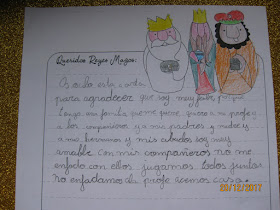 Queridos Reyes Magos:
Os mando esta carta
para agradecer que soy muy feliz porque
tengo una familia que me quiere quiero a mi profe y
a los compañeros y a mis padres y nietos y
a mis hermanos y mis abuelos soy muy
amable. Con mis compañeros no me
enfado con ellos jugamos todos juntos
no enfadamos al profe cosas
20/12/2017